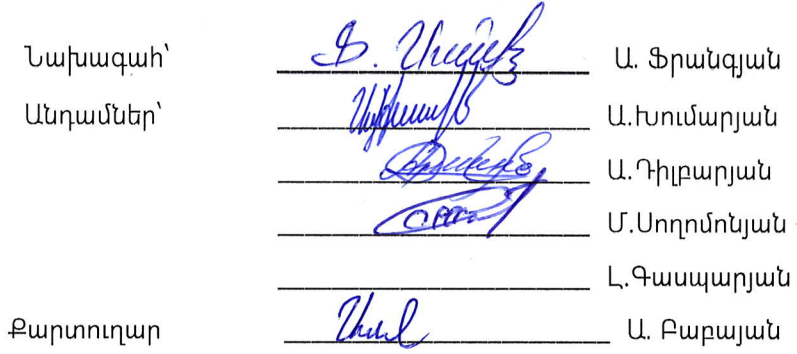 Նախագահ՝ Ա. Ֆրանգյան
Անդամներ՝ Ա.Խումարյան
Ա.Դիլբարյան
Մ.Սողոմոնյան
Լ.Գասպարյան
Քարտուղար Ա. Բաբայան